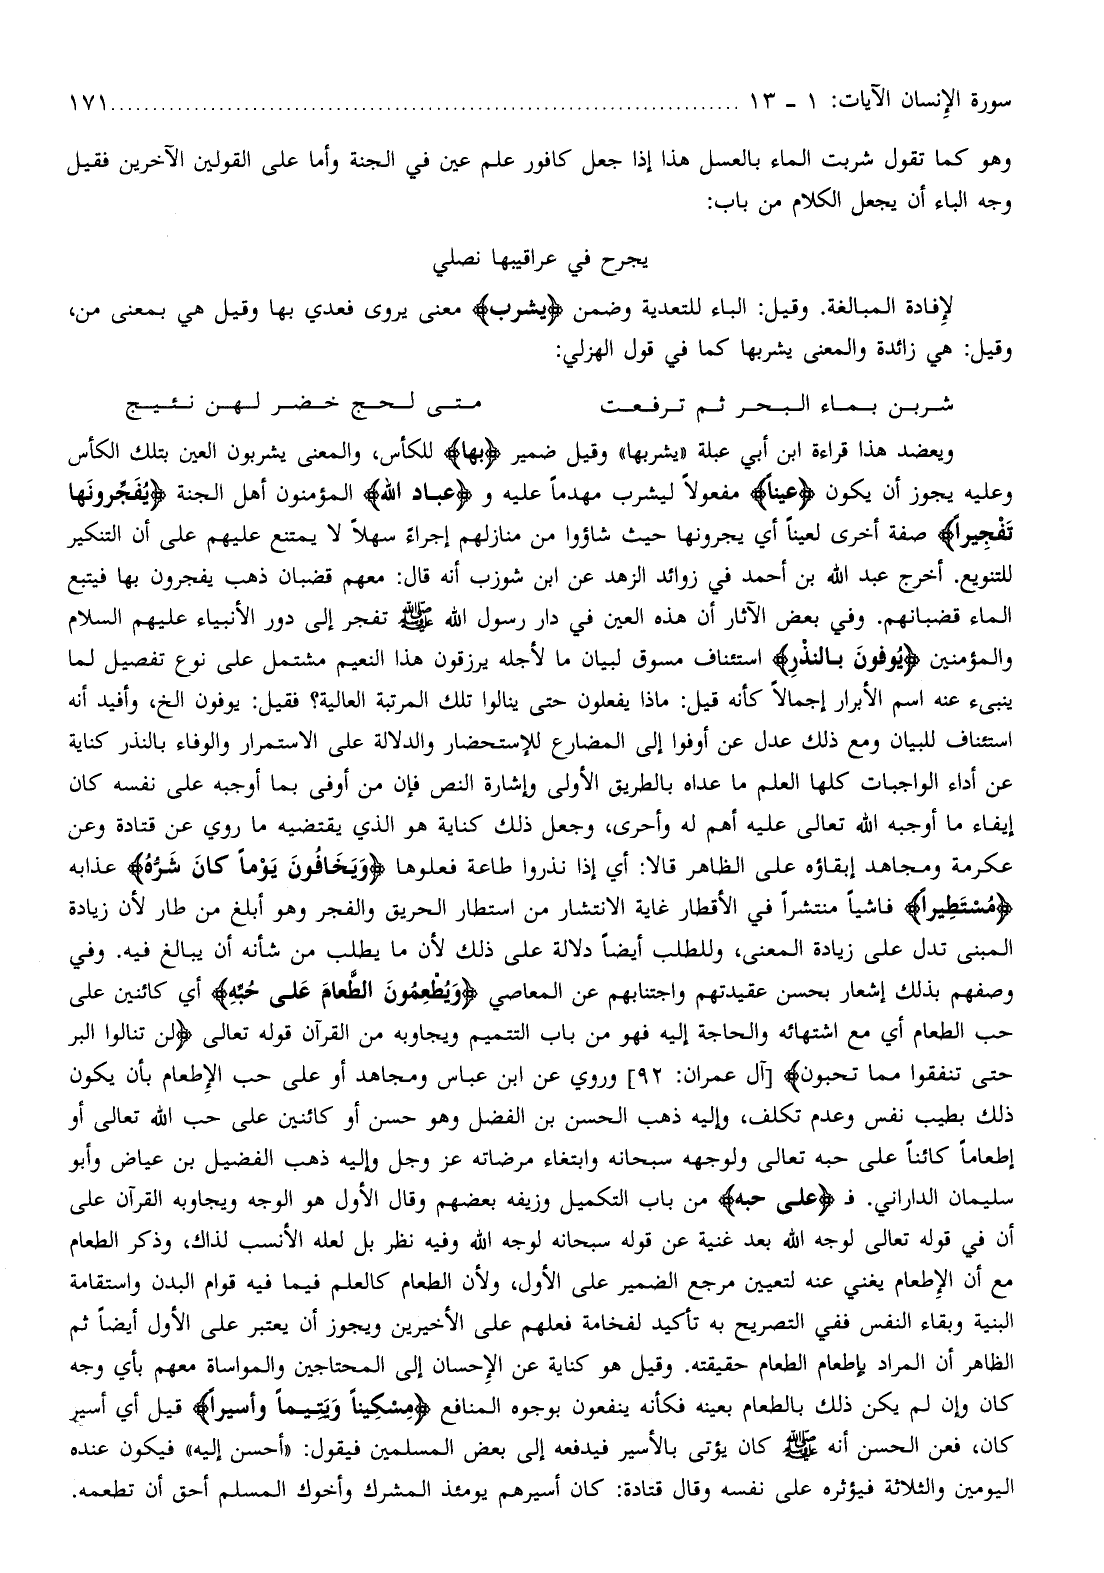 سورة الإنسان الآيات: ١ ـ ١٣ ........................................................................... ١٧١
وهو كما تقول شربت الماء بالعسل هذا إذا جعل كافور علم عين في الجنة وأما على القولين الآخرين فقيل
وجه الباء أن يجعل الكلام من باب:
يجرح في عراقيبها نصلي
لإفادة المبالغة. وقيل: الباء للتعدية وضمن ﴿يشرب﴾ معنى يروى فعدي بها وقيل هي بمعنى من،
وقيل: هي زائدة والمعنى يشربها كما في قول الهزلي:
شربن بماء البحر ثم ترفعت    متى لحج خضر لهن نئيج
ويعضد هذا قراءة ابن أبي عبلة «يشربها» وقيل ضمير ﴿بها﴾ للكأس، والمعنى يشربون العين بتلك الكأس
وعليه يجوز أن يكون ﴿عيناً﴾ مفعولاً ليشرب مهدماً عليه و ﴿عباد الله﴾ المؤمنون أهل الجنة ﴿يُفَجِّرونَها
تَفْجِيراً﴾ صفة أخرى لعيناً أي يجرونها حيث شاؤوا من منازلهم إجراءً سهلاً لا يمتنع عليهم على أن التنكير
للتنويع. أخرج عبد الله بن أحمد في زوائد الزهد عن ابن شوزب أنه قال: معهم قضبان ذهب يفجرون بها فيتبع
الماء قضبانهم. وفي بعض الآثار أن هذه العين في دار رسول الله ﷺ تفجر إلى دور الأنبياء عليهم السلام
والمؤمنين ﴿يُوفونَ بالنذْرِ﴾ استئناف مسوق لبيان ما لأجله يرزقون هذا النعيم مشتمل على نوع تفصيل لما
ينبىء عنه اسم الأبرار إجمالاً كأنه قيل: ماذا يفعلون حتى ينالوا تلك المرتبة العالية؟ فقيل: يوفون الخ، وأفيد أنه
استئناف للبيان ومع ذلك عدل عن أوفوا إلى المضارع للإستحضار والدلالة على الاستمرار والوفاء بالنذر كناية
عن أداء الواجبات كلها العلم ما عداه بالطريق الأولى وإشارة النص فإن من أوفى بما أوجبه على نفسه كان
إيفاء ما أوجبه الله تعالى عليه أهم له وأحرى، وجعل ذلك كناية هو الذي يقتضيه ما روي عن قتادة وعن
عكرمة ومجاهد إبقاؤه على الظاهر قالا: أي إذا نذروا طاعة فعلوها ﴿وَيَخَافُونَ يَوْماً كانَ شَرُّهُ﴾ عذابه
﴿مُسْتَطِيراً﴾ فاشياً منتشراً في الأقطار غاية الانتشار من استطار الحريق والفجر وهو أبلغ من طار لأن زيادة
المبنى تدل على زيادة المعنى، وللطلب أيضاً دلالة على ذلك لأن ما يطلب من شأنه أن يبالغ فيه. وفي
وصفهم بذلك إشعار بحسن عقيدتهم واجتنابهم عن المعاصي ﴿وَيُطْعِمُونَ الطَّعامَ عَلى حُبِّهِ﴾ أي كائنين على
حب الطعام أي مع اشتهائه والحاجة إليه فهو من باب التتميم ويجاوبه من القرآن قوله تعالى ﴿لن تنالوا البر
حتى تنفقوا مما تحبون﴾ [آل عمران: ٩٢] وروي عن ابن عباس ومجاهد أو على حب الإطعام بأن يكون
ذلك بطيب نفس وعدم تكلف، وإليه ذهب الحسن بن الفضل وهو حسن أو كائنين على حب الله تعالى أو
إطعاماً كائناً على حبه تعالى ولوجهه سبحانه وابتغاء مرضاته عز وجل وإليه ذهب الفضيل بن عياض وأبو
سليمان الداراني. فـ ﴿على حبه﴾ من باب التكميل وزيفه بعضهم وقال الأول هو الوجه ويجاوبه القرآن على
أن في قوله تعالى لوجه الله بعد غنية عن قوله سبحانه لوجه الله وفيه نظر بل لعله الأنسب لذاك، وذكر الطعام
مع أن الإطعام يغني عنه لتعيين مرجع الضمير على الأول، ولأن الطعام كالعلم فيما فيه قوام البدن واستقامة
البنية وبقاء النفس ففي التصريح به تأكيد لفخامة فعلهم على الأخيرين ويجوز أن يعتبر على الأول أيضاً ثم
الظاهر أن المراد بإطعام الطعام حقيقته. وقيل هو كناية عن الإحسان إلى المحتاجين والمواساة معهم بأي وجه
كان وإن لم يكن ذلك بالطعام بعينه فكأنه ينفعون بوجوه المنافع ﴿مِسْكِيناً وَيَتِيماً وأسيراً﴾ قيل أي أسير
كان، فعن الحسن أنه ﷺ كان يؤتى بالأسير فيدفعه إلى بعض المسلمين فيقول: «أحسن إليه» فيكون عنده
اليومين والثلاثة فيؤثره على نفسه وقال قتادة: كان أسيرهم يومئذ المشرك وأخوك المسلم أحق أن تطعمه.